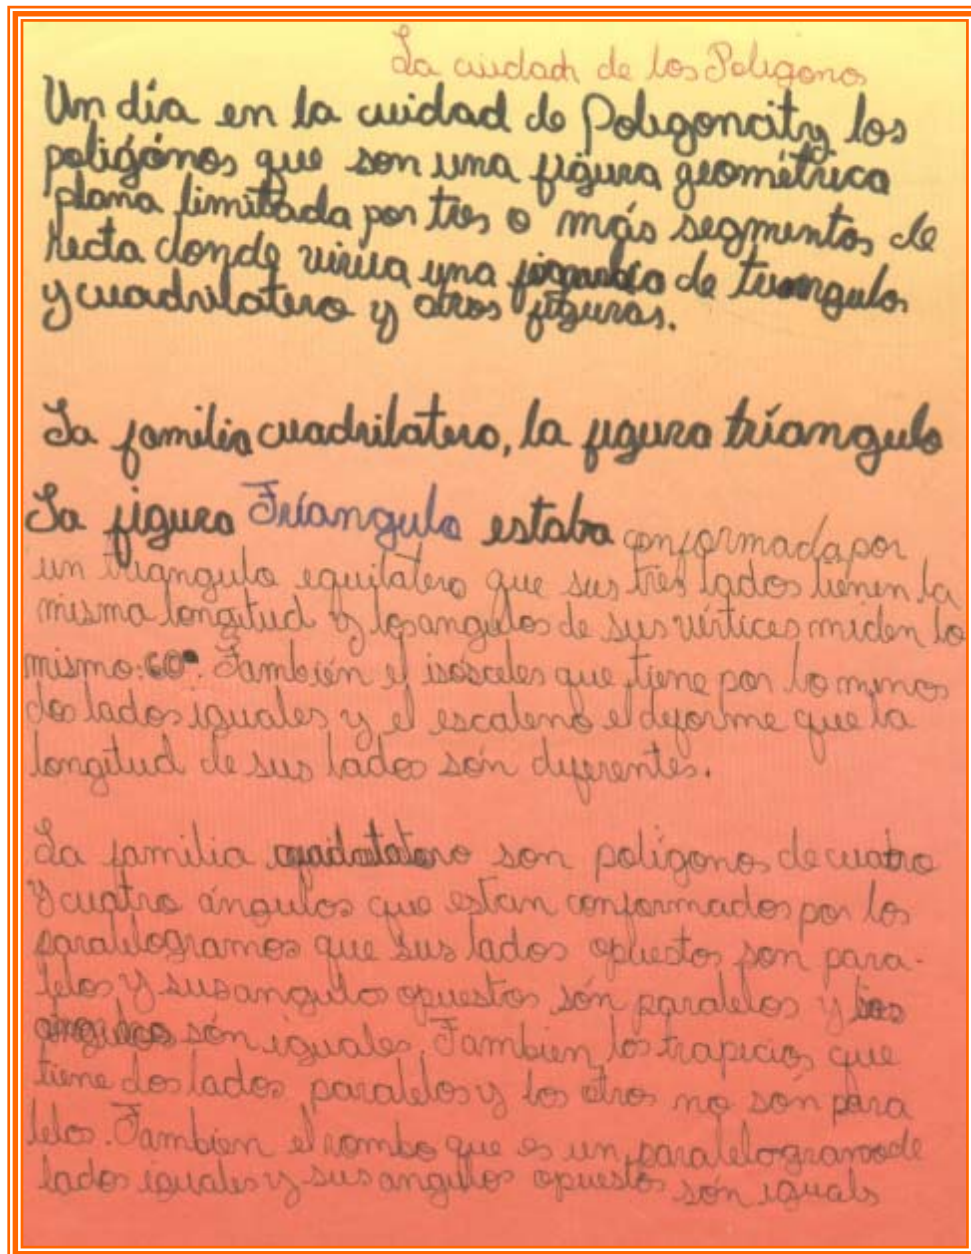 La ciudad de los Poligonos
Un día en la cuidad de Poligoncity los
poligónos que son una figura geométrica
plana limitada por tres o más segmentos de
recta donde vivia una de triangulos
y cuadrilatero y otros figuras.
La familia cuadrilatero, la figura tríangulo
La figura Tríangulo estaba conformada por
un triangulo equilatero que sus tres lados tienen la
misma longitud y los angulos de sus vértices miden lo
mismo: 60°. También el isósceles que tiene por lo menos
dos lados iguales y el escaleno el deforme que la
longitud de sus lados són diferentes.
La familia cuadrilatero son polígonos de cuatro
y cuatro ángulos que estan conformados por los
paralelogramos que sus lados opuestos son para-
lelos y sus angulos opuestos són paralelos y los
angulos són iguales. Tambien los trapecios que
tiene dos lados paralelos y los otros no són para
lelos. Tambien el rombo que es un paralelogramo de
lados iguales y sus angulos opuestos són iguals